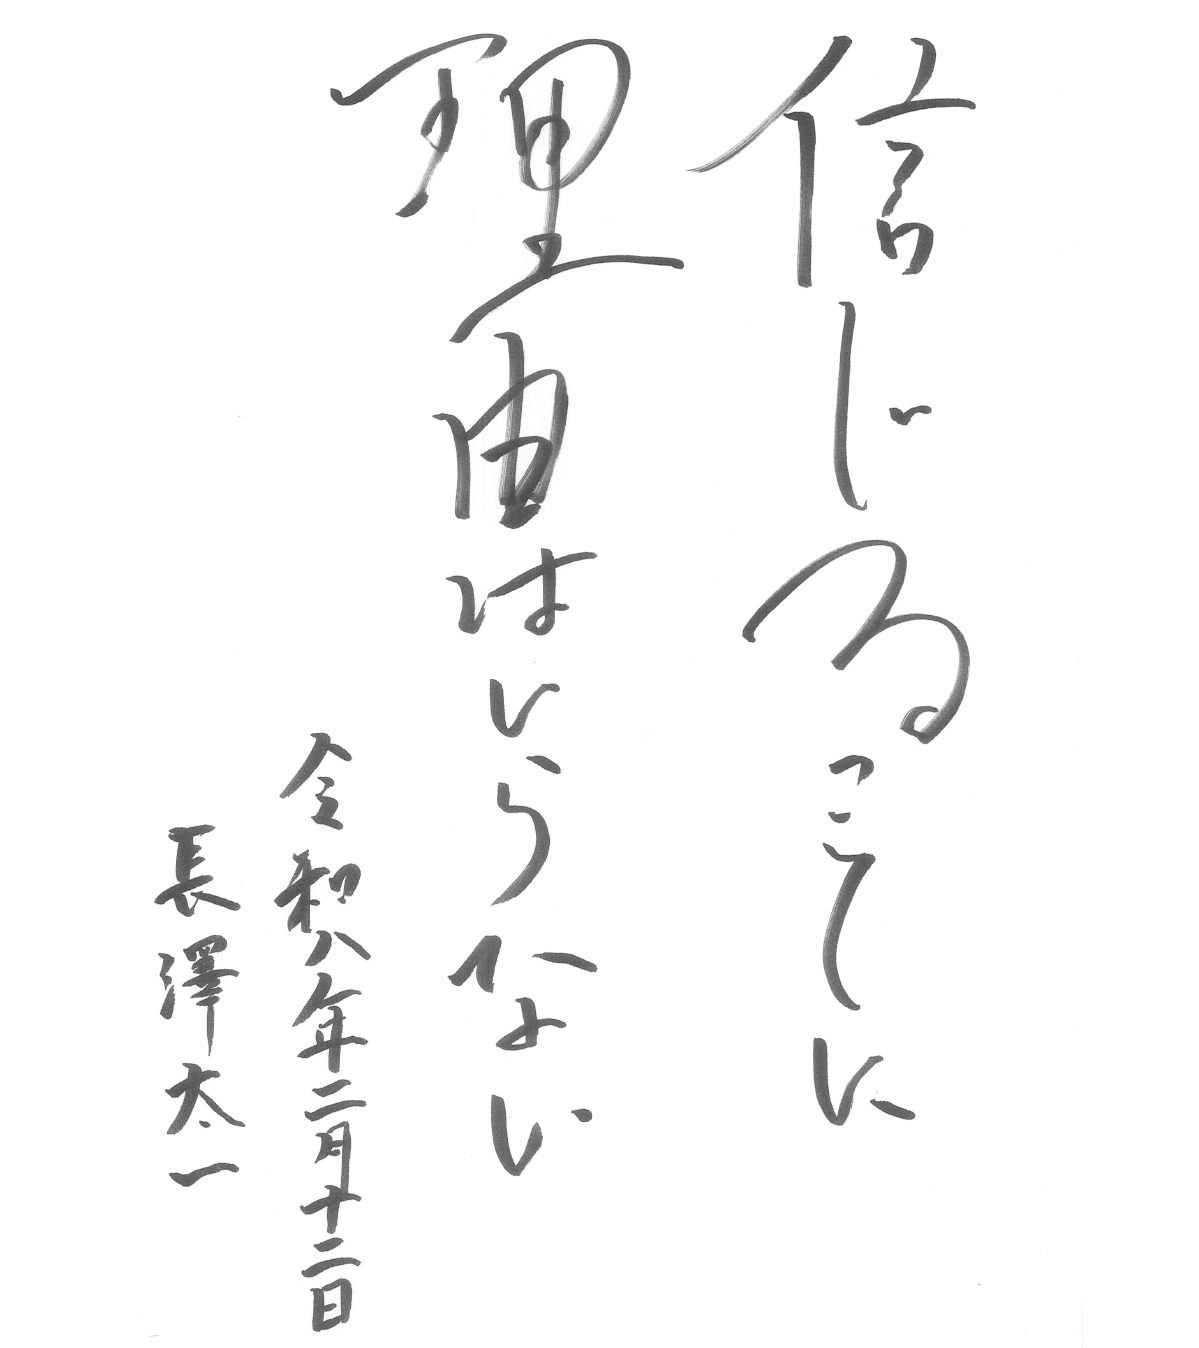 信じることに
理由はいらない
令和八年二月十二日
長澤太一